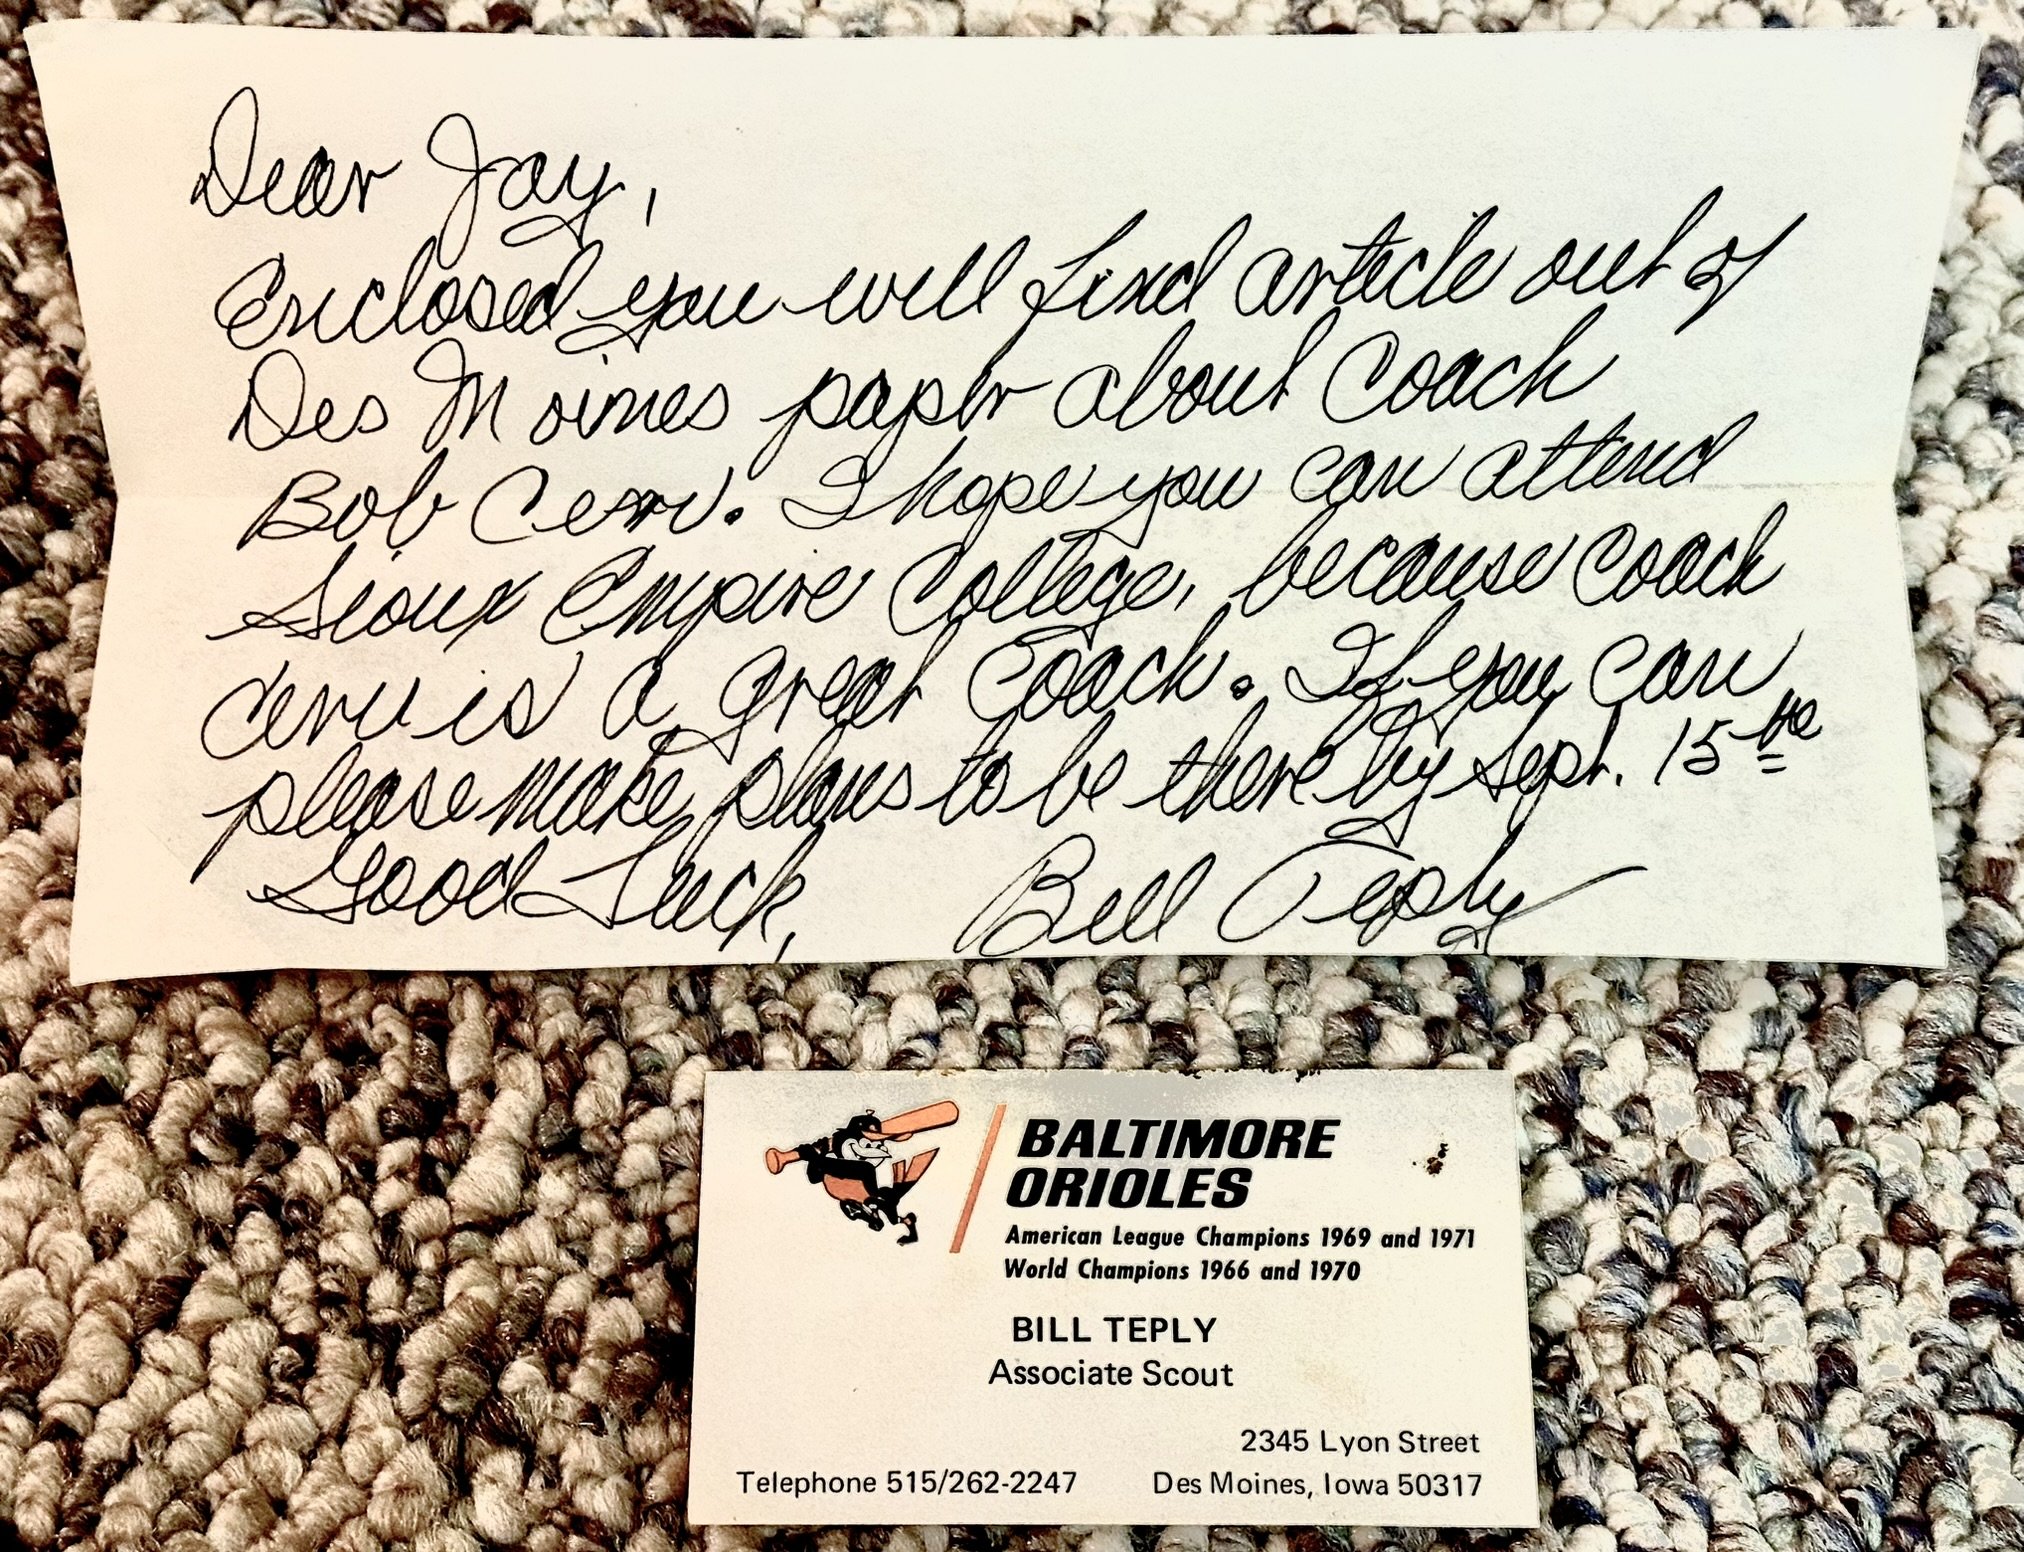 Dear Jay,
Enclosed you will find article out of
Des Moines paper about Coach
Bob Cerv. I hope you can attend
Sioux Empire College, because Coach
Cerv is a great Coach. If you can
please make plans to be there by Sept. 15th
Good Luck, Bill Teply
BALTIMORE
ORIOLES
American League Champions 1969 and 1971
World Champions 1966 and 1970
BILL TEPLY
Associate Scout
2345 Lyon Street
Telephone 515/262-2247 Des Moines, Iowa 50317